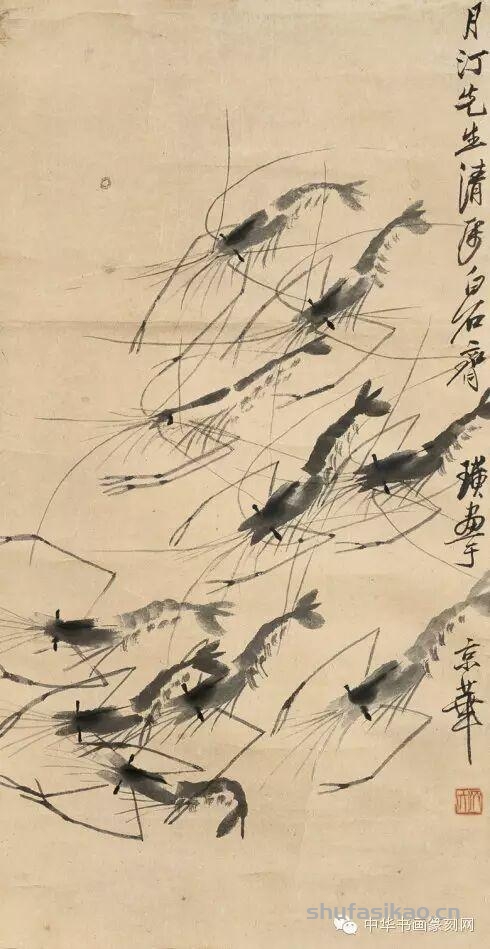 月汀先生清属白石齐璜画于京华
shufasikao.cn
中华书画篆刻网